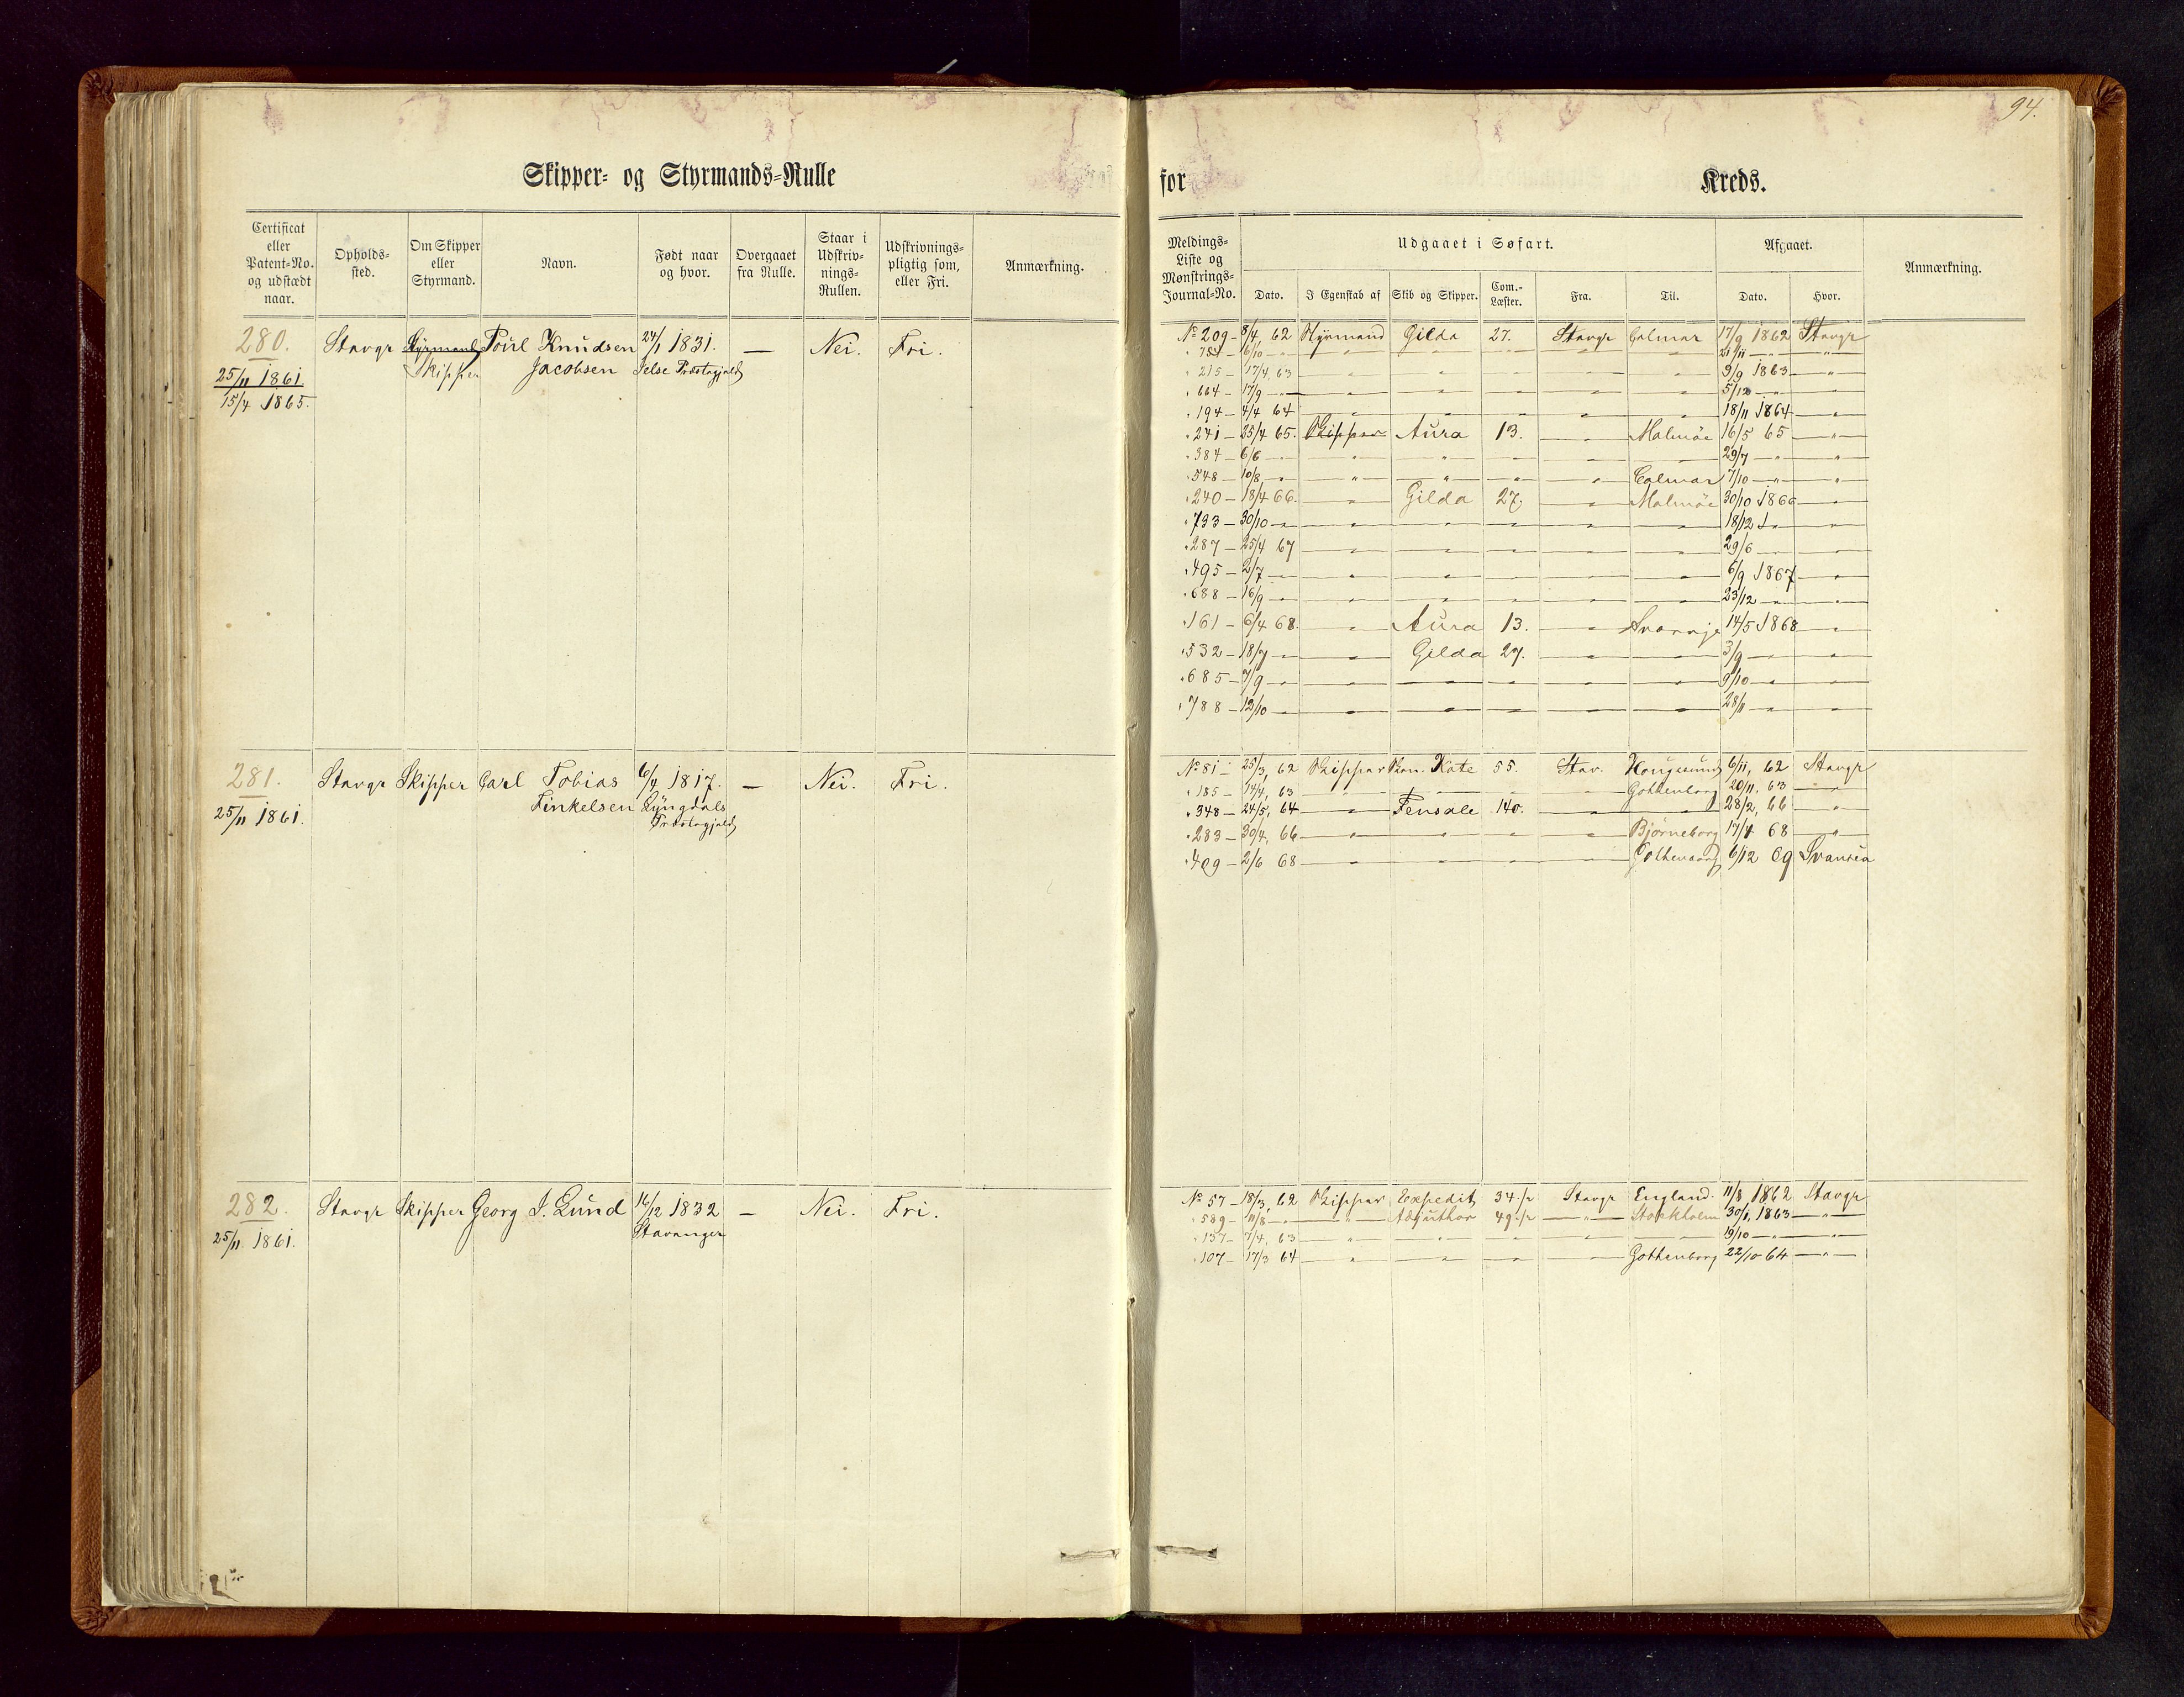 94.
Skipper- og Styrmands-Rulle for Kreds.
Certificat eller Patent-No. og udstædt naar. Opholds-sted. Om Skipper eller Styrmand. Navn. Født naar og hvor. Overgaaet fra Rulle. Staar i Udskriv-nings-Rullen. Udskrivnings-pligtig som, eller Fri. Anmærkning.
Meldings-Liste og Mønstrings-Journal-No. Udgaaet i Søfart. Afgaaet. Anmærkning.
Dato. I Egenskab af Skib og Skipper. Com.-Læster. Fra. Til. Dato. Hvor.
280. Stavgr Styrmand Poul Knudsen 24/1 1831. — Nei. Fri.
Skipper Jacobsen Jelse Præstegjæld
25/11 1861.
15/4 1865.
No 209 – 8/4, 62 Styrmand Gilda 27. Stavgr Calmar 17/9 1862 Stavgr
" 784 – 6/10 – " – " – " – " – " – " 21/11 – " – "
" 215 – 17/4, 63 – " – " – " – " – " 9/9 1863 – "
" 664 – 17/9 – " – " – " – " – " – " 5/12 – " – "
" 194 – 4/4 64 – " – " – " – " – " 18/11 1864 – "
" 241 – 25/4 65. Skipper Aura 13. – " – Malmöe 16/5 65 – "
" 384 – 6/6 – " – " – " – " – " – " 29/7 – " – "
" 548 – 10/8 – " – " – " – " – " – Calmar 7/10 – " – "
" 240 – 18/4 66. – " – Gilda 27. – " – Malmöe 30/10 1866 – "
" 793 – 30/10 – " – " – " – " – " – " 18/12 – " – "
" 287 – 25/4 67 – " – " – " – " – " 29/6 – " – "
" 495 – 2/7 – " – " – " – " – " – " 6/9 1867 – "
" 688 – 16/9 – " – " – " – " – " – " 23/12 – " – "
" 161 – 6/4 68. – " – Aura 13. – " – 14/5 1868 – "
" 532 – 18/7 – " – " – Gilda 27. – " – " 3/9 – " – "
" 685 – 7/9 – " – " – " – " – " – " 9/10 – " – "
" 788 – 12/10 – " – " – " – " – " – " 28/11 – " – "
281. Stavgr Skipper Carl Tobias 6/4 1817. — Nei. Fri.
Finkelsen Lyngdals
25/11 1861. Præstegjæld
No 81 – 25/3, 62 Skipper Kate 55. Stav. Hougesund 6/11, 62 Stavgr
" 185 – 14/4, 63 – " – " – " – " – Gothenborg 20/11, 63 – "
" 348 – 24/5, 64 – " – Tensale 140. – " – " 28/2, 66 – "
" 283 – 30/4, 66 – " – " – " – " – Bjørneborg 17/4 68 – "
" 409 – 2/6 68 – " – " – " – " – Gothenborg 6/12 69 Svansea
282. Stavgr Skipper Georg J. Lund 16/12 1832 — Nei. Fri.
25/11 1861. Stavanger
No 57 – 18/3, 62 Skipper Expedit 34. Stavgr England. 11/8 1862 Stavgr
" 589 – 11/8 – " – " – 49. – " – Stockholm 30/1, 1863 – "
" 137 – 7/4, 63 – " – " – " – " – " 19/10 – " – "
" 107 – 17/3 64 – " – " – " – " – Gothenborg 22/10 64 – "